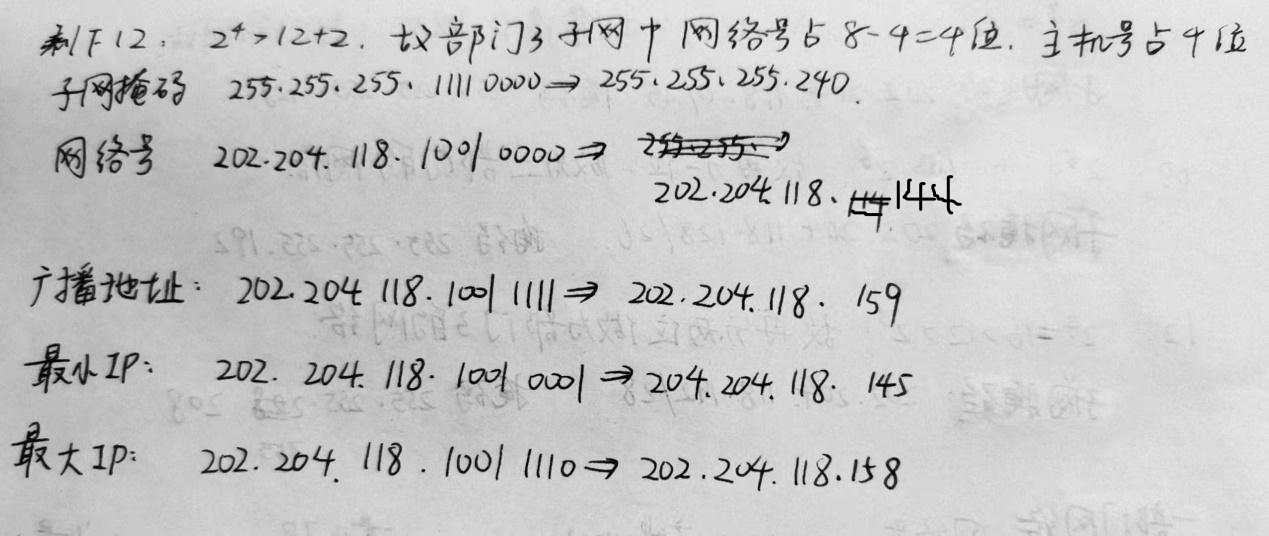 剩下12: 2⁴>12+2. 故部门3子网中网络号占8-4=4位. 主机号占4位
子网掩码 255.255.255.11110000⇒255.255.255.240.
网络号 202.204.118.10010000⇒ 255.255.
202.204.118. 114 144
广播地址: 202.204 118.10011111⇒ 202.204.118. 159
最小IP: 202. 204. 118. 10010001⇒204.204.118. 145
最大IP: 202. 204. 118 .10011110⇒202.204.118.158